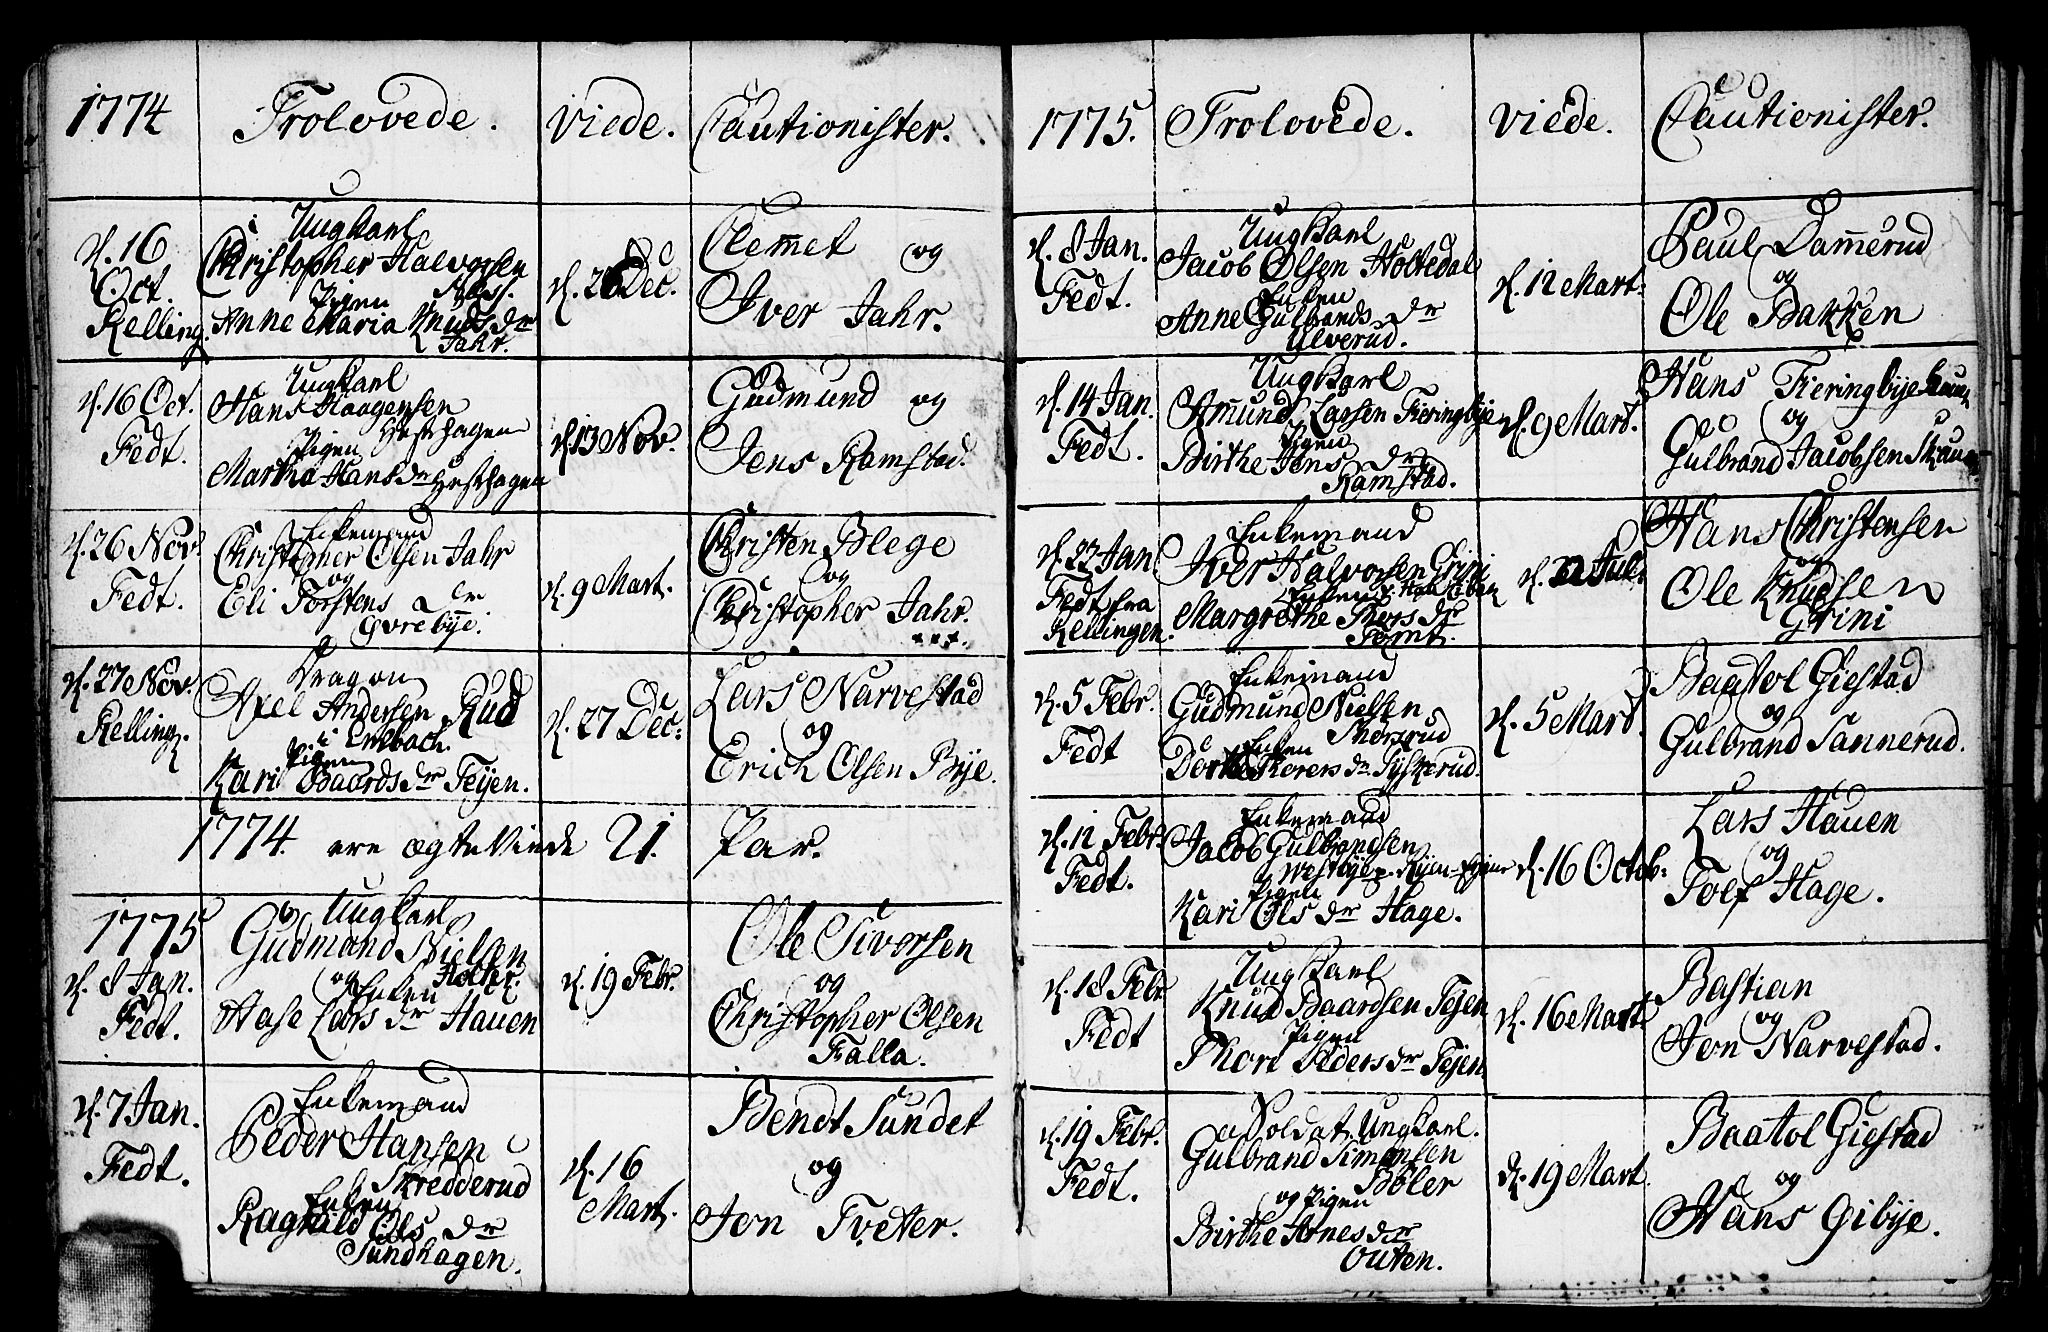 1774
Trolovede.
viede.
Cautionister.
d. 16
Oct.
Kelling.
Ungkarl
Christopher Halvorsen
Pigen
Anne Maria Knuds dr
Jahr.
d. 26 Dec.
Clemet og
Iver Jahr.
d. 16 Oct.
Fedt.
Ungkarl
Hans Haagensen
Hesthagen
Pigen
Martha Hans dr Hesthagen
d. 13 Nov.
Gudmund og
Jens Ramstad.
d. 26 Nov.
Fedt.
Enkemand
Christopher Olsen Jahr
og
Eli Torstens dr
Gvrebye.
d. 9 Mart.
Christen Blege
og
Christopher Jahr.
d. 27 Nov.
Kelling.
Dragon
Axel Andersen Rud
i Enebach.
Pigen
Kari Baards dr Tejen.
d. 27 Dec:
Lars Narvestad
og
Erich Olsen Bye.
1774. ere ægte Viede 21. Par.
1775
d. 8 Jan.
Fedt.
Ungkarl
Gudmand Nielsen
Holter.
og Enken
Aase Lars dr Hauen
d. 19 Febr.
Ole Siversen
og
Christopher Olsen
Falla.
d. 7 Jan.
Fedt.
Enkemand
Peder Hansen
Skredderud
Enken
Ragnild Ols dr
Sundhagen.
d. 16
Mart.
Bendt Sundet
og
Jon Tveter.
1775.
Trolovede.
viede.
Cautionister.
d. 8 Jan.
Fedt.
Ungkarl
Jacob Olsen Holtedal
Enken
Anne Gulbrands dr
Ulverud.
d. 12 Mart:
Paul Dammerud
og
Ole Bakken
d. 14 Jan.
Fedt.
Ungkarl
Amund Larsen Fieringbye
Pigen
Birthe Jens dr
Ramstad.
d. 9 Mart.
Hans Fieringbye
og
Gulbrand Jacobsen
d. 22 Jan
Fedt fra
Kellingen.
Enkemand
Iver Halvorsen Grini
Enken
Margrethe Thors dr
d. 22 Jul:
Hans Christensen
og
Ole Knudsen
Grini
d. 5 Febr.
Fedt
Enkemand
Gudmund Nielsen
Thorsrud
Enken
Dorthe Thorers dr Syskerud.
d. 5 Mart.
Baatol Giestad
og
Gulbrand Sannerud.
d. 12 Febr.
Fedt.
Enkemand
Jacob Gulbrandsen
Westbye
Pigen
Kari Ols dr Hage.
d. 16 Octob:
Lars Hauen
og
Tolf Hage.
d. 18 Febr
Fedt
Ungkarl
Knud Baardsen Tejen
Pigen
Thore Peders dr Tejen
d. 16 Mart.
Bastian
og
Jon Narvestad.
d. 19 Febr.
Fedt.
Soldat. Ungkarl.
Gulbrand Simensen
Bøler
og Pigen
Birthe Arnes dr
Outen.
d. 19 Mart.
Baatol Giestad
og
Hans Gibye.